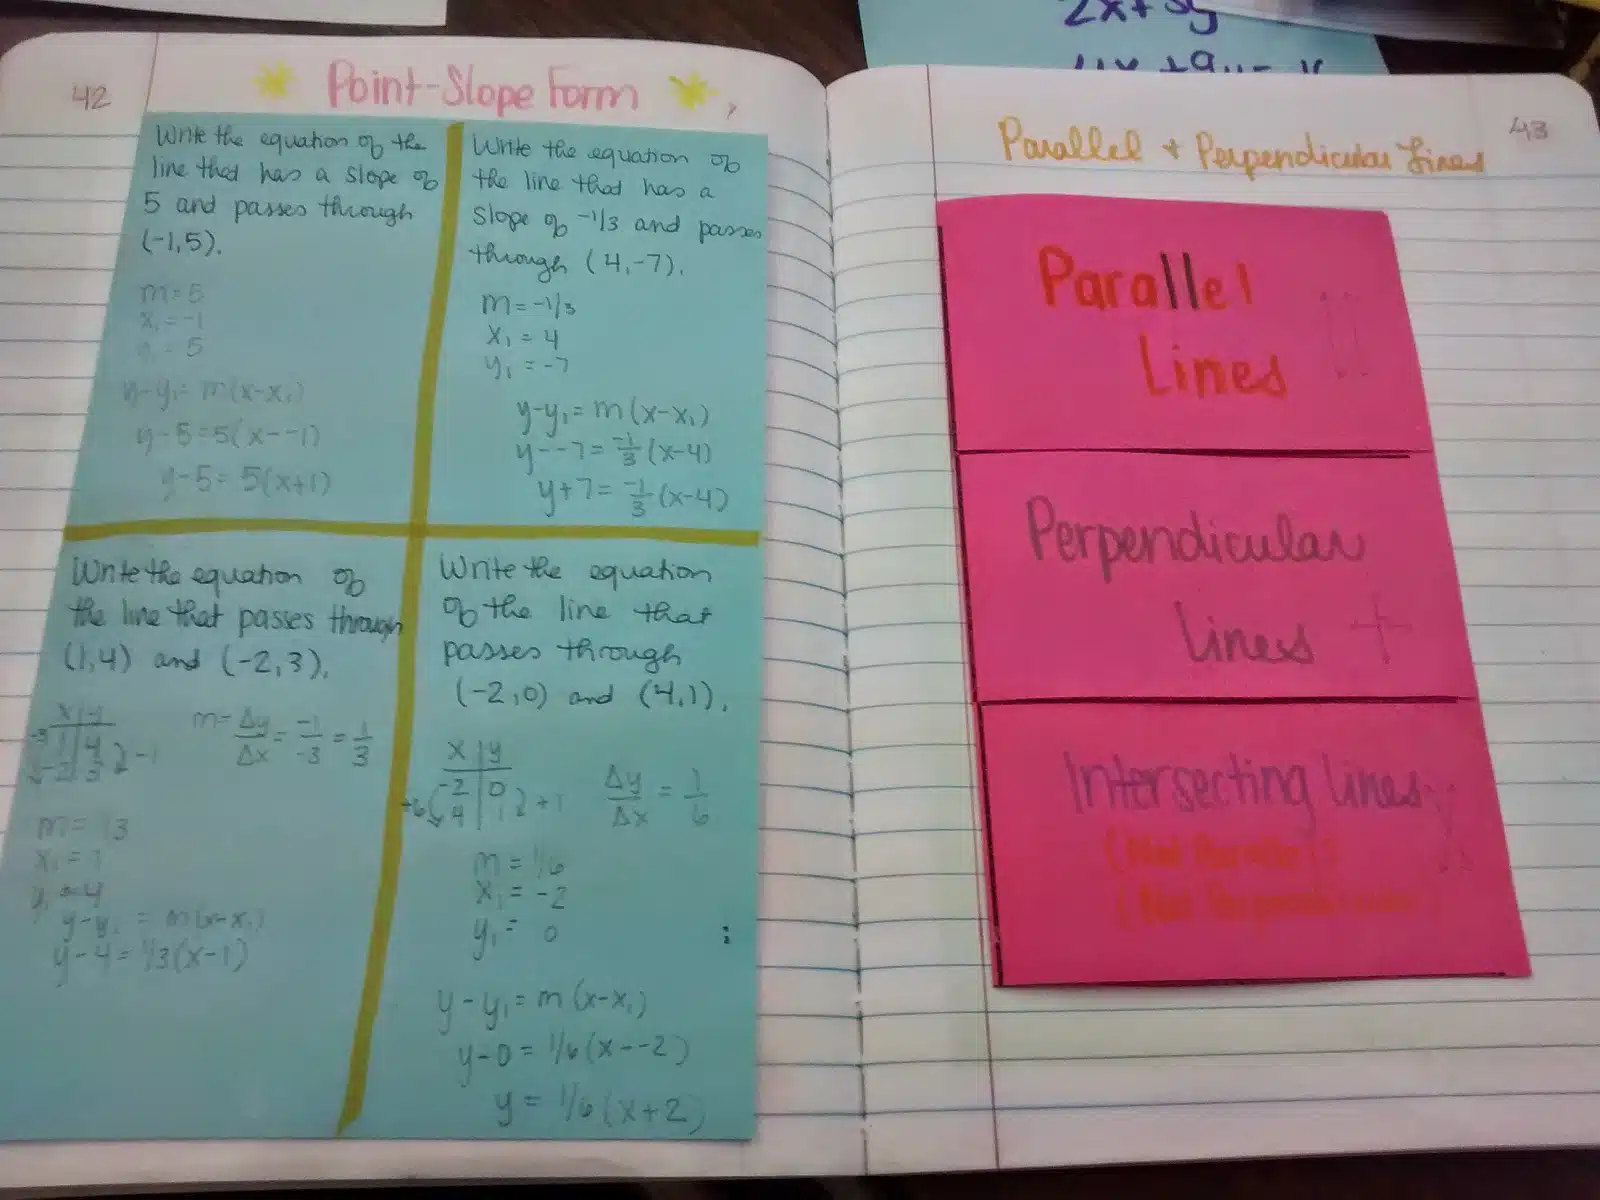 2x+3y
42
Point-Slope Form
Write the equation of the
line that has a slope of
5 and passes through
(-1,5).
m=5
x₁=-1
y₁=5
y-y₁=m(x-x₁)
y-5=5(x--1)
y-5=5(x+1)
Write the equation of
the line that has a
slope of -1/3 and passes
through (4,-7).
m=-1/3
x₁=4
y₁=-7
y-y₁=m(x-x₁)
y--7=-1/3(x-4)
y+7=-1/3(x-4)
Write the equation of
the line that passes through
(1,4) and (-2,3).
x y
-3 1 4 -1
-2 3
m=Δy/Δx=-1/-3=1/3
x₁=1
y₁=4
y-y₁=m(x-x₁)
y-4=1/3(x-1)
Write the equation
of the line that
passes through
(-2,0) and (4,1).
x y
-2 0
+6 4 1 +1
Δy/Δx=1/6
m=1/6
x₁=-2
y₁=0
y-y₁=m(x-x₁)
y-0=1/6(x--2)
y=1/6(x+2)
43
Parallel + Perpendicular Lines
Parallel
Lines
Perpendicular
Lines
Intersecting Lines
(Not Parallel)
(Not Perpendicular)